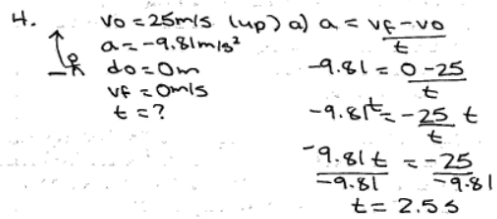 4.
vo = 25m/s (up)
a = -9.81m/s²
do = 0m
vf = 0m/s
t = ?
a) a = vf - vo / t
-9.81 = 0 - 25 / t
-9.81t = -25 / t t
-9.81t / -9.81 = -25 / -9.81
t = 2.5s